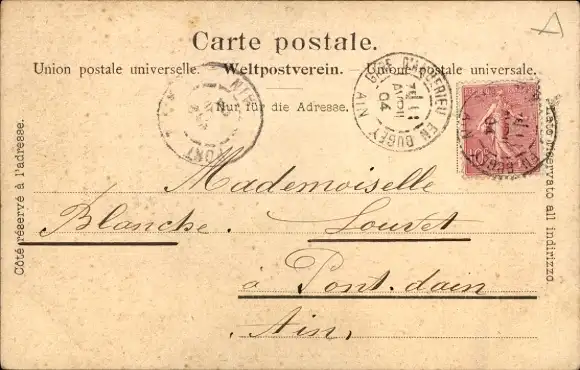 Carte postale.
Union postale universelle. Weltpostverein. Union postale universale.
Nur für die Adresse.
Côté réservé à l'adresse.
GARE D'AMBERIEU EN BUGEY AIN
AVRIL
04
PONT
AIN
04
Mademoiselle
Blanche. Louvet
à Pont. dain
Ain,
Lato riservato all indirizzo.